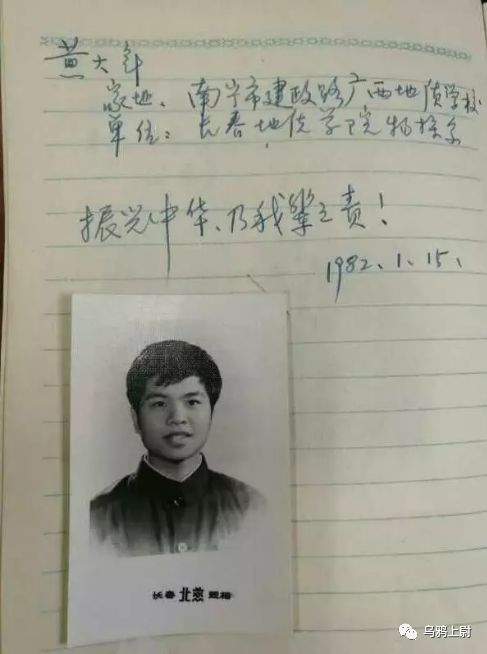 黄大年
家址：南宁市建政路广西地质学校
单位：长春地质学院物探系
振兴中华、乃我辈之责！
1982.1.15.
长春 北燕 照相
乌鸦上尉